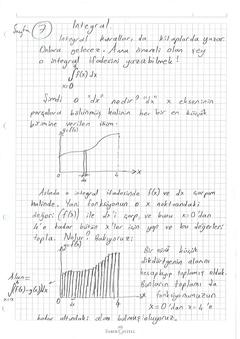 Sayfa 7
Integral
Integral kuralları, da kitaplarda yazar.
Onlara gelecez. Ama önemli olan şey
o integral ifadesini yazabilmek!
∫ f(x) dx
x=0
Şimdi o "dx" nedir? "dx" x ekseninin
parçalara bölünmüş halinin her bir en küçük
birimine verilen isim.
x
4
Aslında o integral ifadesinde f(x) ve dx çarpım
halinde. Yani fonksiyonun o x noktasındaki
değeri (f(x)) ile dx'i çarp, ve bunu x=0'dan
4'e kadar bütün x'ler için yap ve bu değerleri
topla. Nolur? Bakıyoruz:
Bir sürü küçük
dikdörtgenin alanını
hesaplayıp toplamış olduk.
Bunların toplamı da
fonksiyonumuzun
x=0'dan x=4'e
Alan=
x
4
kadar altındaki alanı bulmuş oluyoruz.
FABER-CASTELL